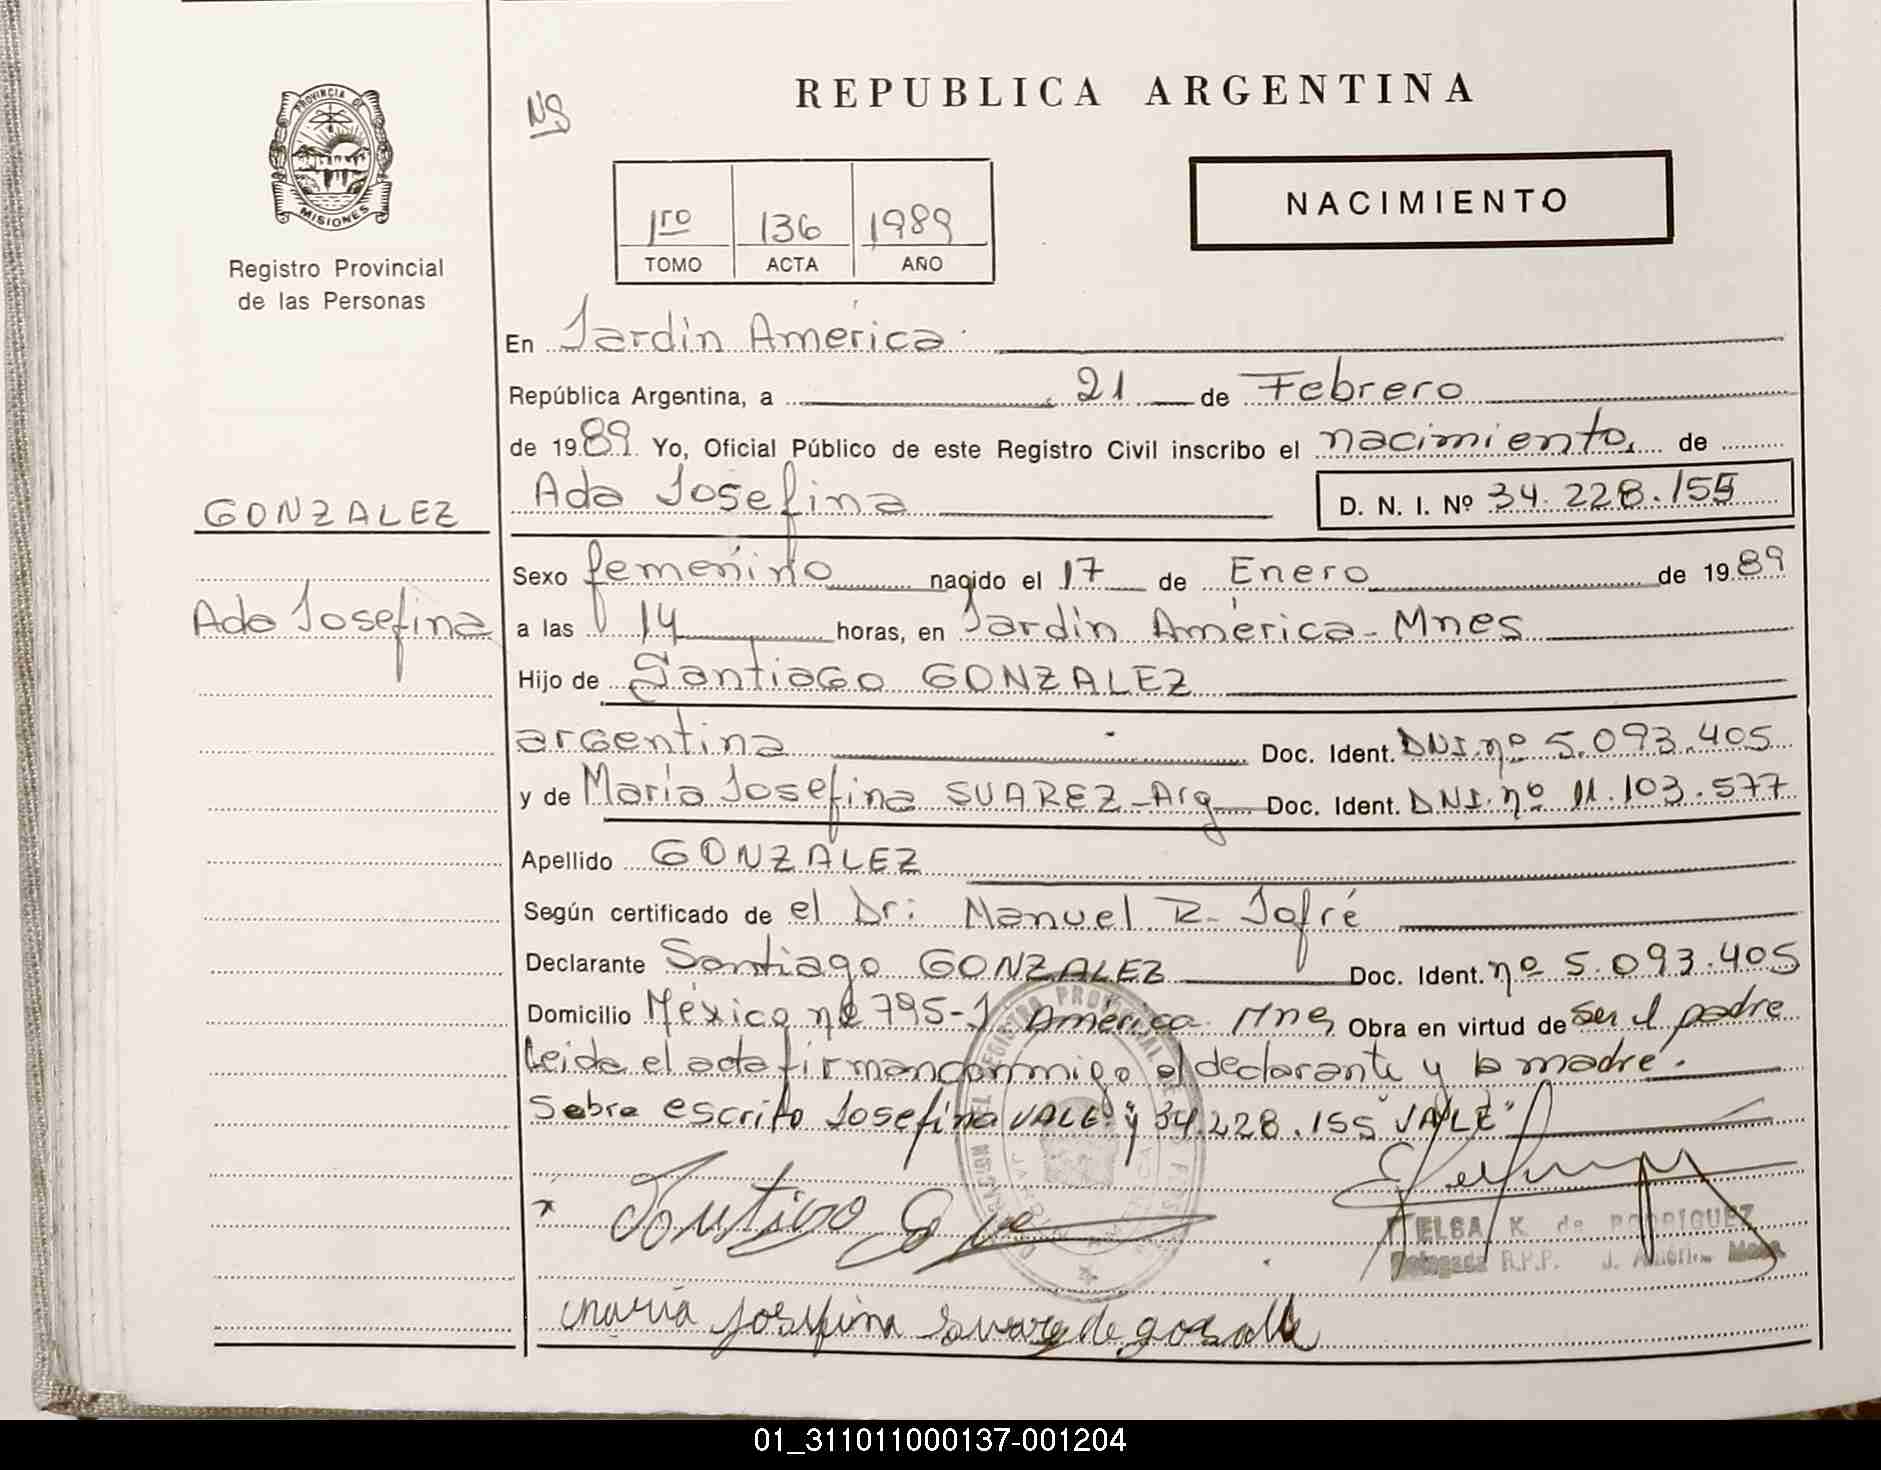 PROVINCIA DE
MISIONES
Registro Provincial
de las Personas
GONZALEZ
Ada Josefina
NS
REPUBLICA ARGENTINA
1ro 136 1989
TOMO ACTA AÑO
NACIMIENTO
En Jardín América
República Argentina, a 21 de Febrero
de 1989 Yo, Oficial Público de este Registro Civil inscribo el nacimiento, de
Ada Josefina D. N. I. Nº 34.228.155
Sexo femenino nacido el 17 de Enero de 1989
a las 14 horas, en Jardín América - Mnes
Hijo de Santiago GONZALEZ
argentina Doc. Ident. DNI. nº 5.093.405
y de María Josefina SUAREZ - Arg Doc. Ident. DNI. nº 11.103.577
Apellido GONZALEZ
Según certificado de el Dr: Manuel R. Jofré
Declarante Santiago GONZALEZ Doc. Ident. nº 5.093.405
Domicilio México nº 795 - J. América - Mnes Obra en virtud de ser el padre
Leida el acta firman conmigo el declarante y la madre.
Sobre escrito Josefina VALE y 34.228.155 "VALE"
Santiago
ELSA K. de RODRIGUEZ
Delegada R.P.P. J. Améri
maria Josefina Suarez de
01_311011000137-001204